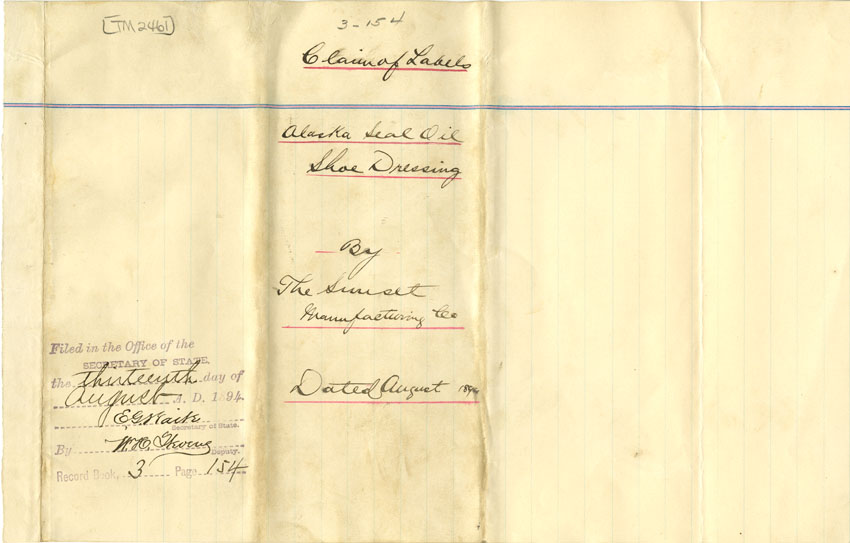 [TM2461]
3-154
Claim of Labels
Alaska Seal Oil
Shoe Dressing
By
The Sunset
Manufacturing Co
Dated August 1894
Filed in the Office of the
SECRETARY OF STATE,
the thirteenth day of
August A. D. 1894.
E G Waite
Secretary of State.
By W. H. Stevens
Deputy.
Record Book, 3 Page 154